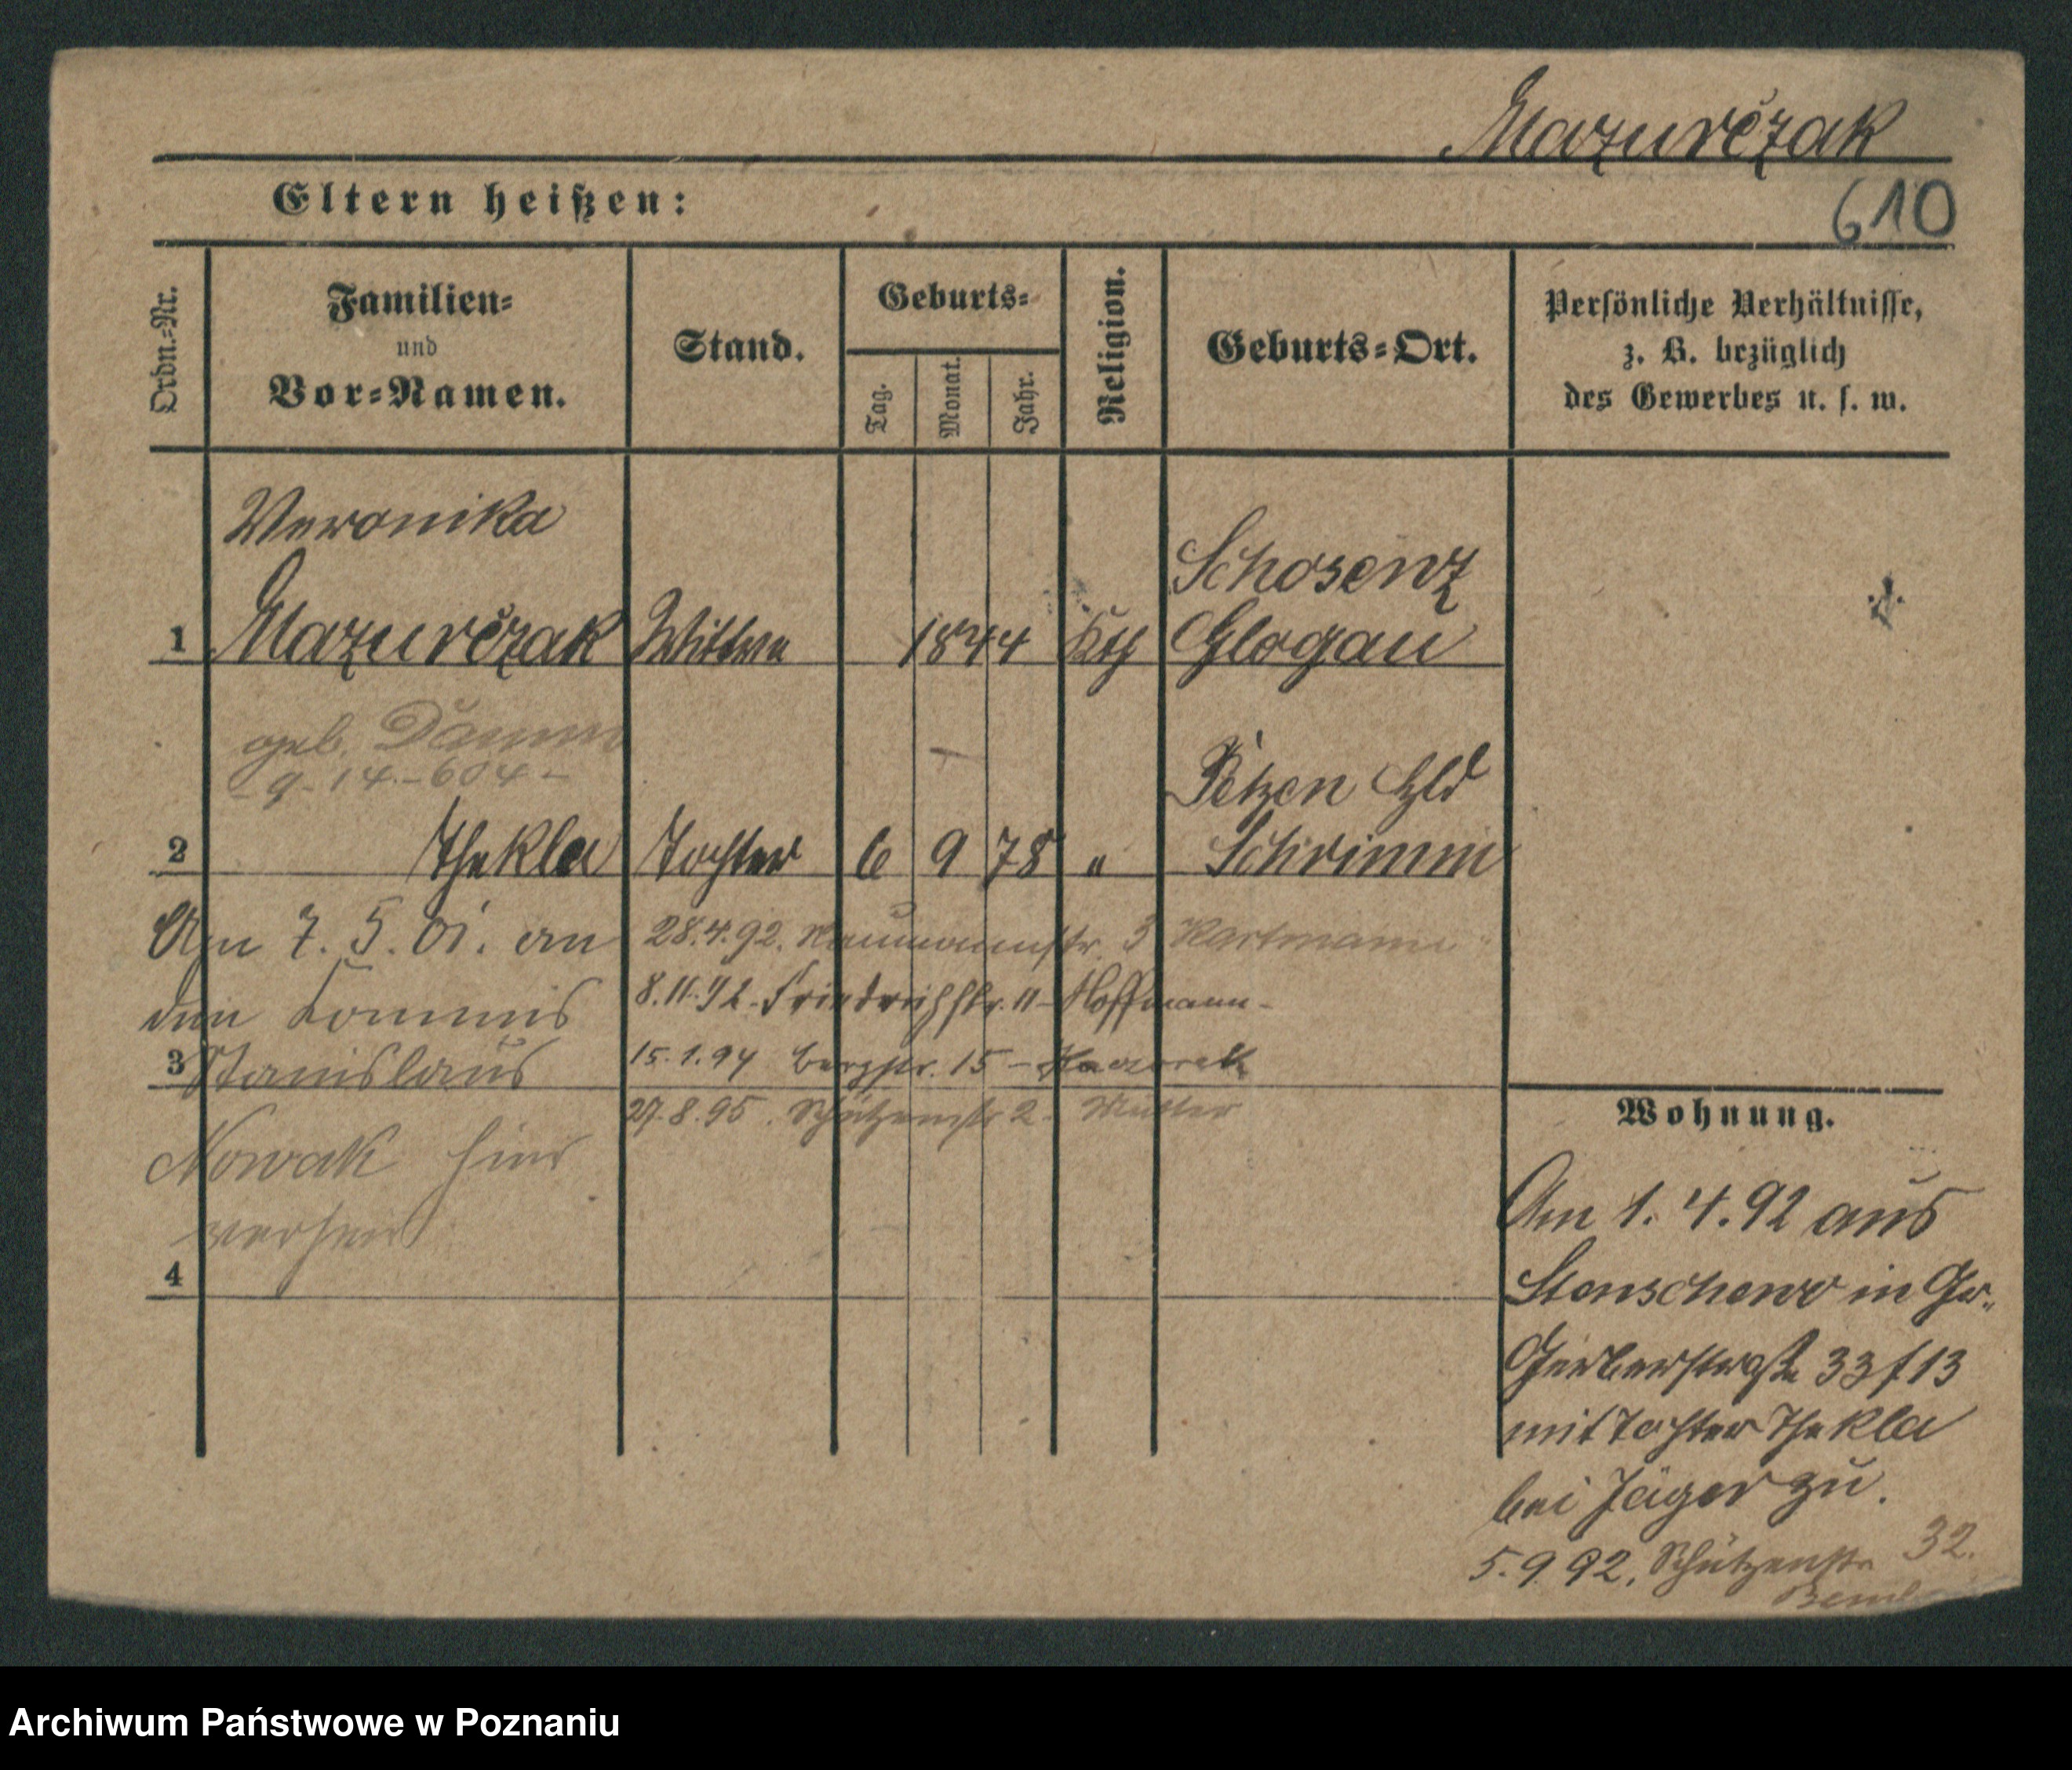 Mazurčzak
Eltern heißen:
610
Ordn.-Nr.
Familien-
und
Vor-Namen.
Stand.
Geburts-
Tag.
Monat.
Jahr.
Religion.
Geburts-Ort.
Persönliche Verhältnisse,
z. B. bezüglich
des Gewerbes u. s. w.
Veronika
Schosenz
1 Mazurčzak Wittwe 1844 Kth Glogau
geb.
- 9 - 14 - 604 -
2 Thekla Tochter 6 9 78 " Schrimm
Am 7. 5. 01. an
den Kommis
3 Stanislaus
Nowak hier
verheir
4
28.4.92. Naumannstr. 3 Hartmann
8.11.92. Friedrichstr. 11 - Hoffmann -
15.1.94 Bergstr. 15 -
27.8.95. Schützenstr 2. Mutter
Wohnung.
Am 1. 4. 92 aus
Stenschewo in Gr.
Gerberstraße 33 f 13
mit Tochter Thekla
bei Jäger zu.
5.9.92. Schützenstr 32.
Archiwum Państwowe w Poznaniu